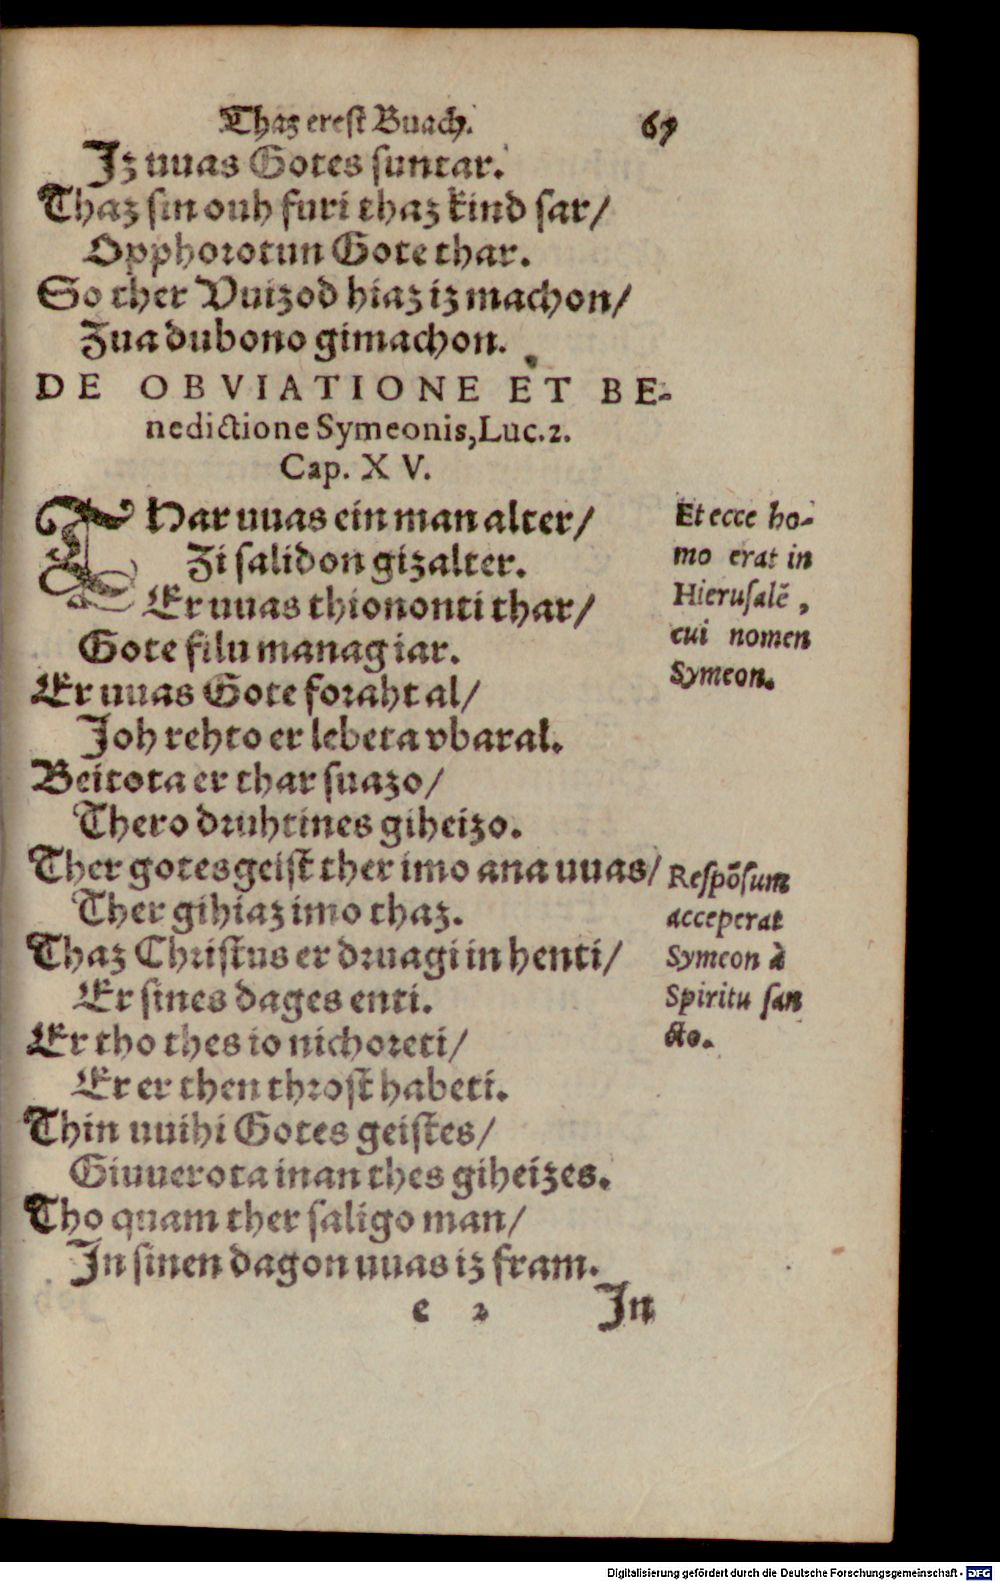 Thaz erest Buach. 67
Iz uuas Gotes suntar.
Thaz sin ouh furi thaz kind sar/
Opphorotun Gote thar.
So ther Vuizod hiaz iz machon/
Zua dubono gimachon.
DE OBVIATIONE ET BE-
nedictione Symeonis, Luc. 2.
Cap. XV.
THar uuas ein man alter/
Zi salidon gizalter.
Er uuas thiononti thar/
Gote filu manag iar.
Er uuas Gote foraht al/
Joh rehto er lebeta vbaral.
Beitota er thar suazo/
Thero druhtines giheizo.
Ther gotes geist ther imo ana uuas/
Ther gihiaz imo thaz.
Thaz Christus er druagi in henti/
Er sines dages enti.
Er tho thes io nichoreti/
Er er then throst habeti.
Thin uuihi Gotes geistes/
Giuuerota inan thes giheizes.
Tho quam ther saligo man/
In sinen dagon uuas iz fram.
e 2 In
Et ecce ho-
mo erat in
Hierusalē,
cui nomen
Symeon.
Respōsum
acceperat
Symeon à
Spiritu san
cto.
Digitalisierung gefördert durch die Deutsche Forschungsgemeinschaft - DFG